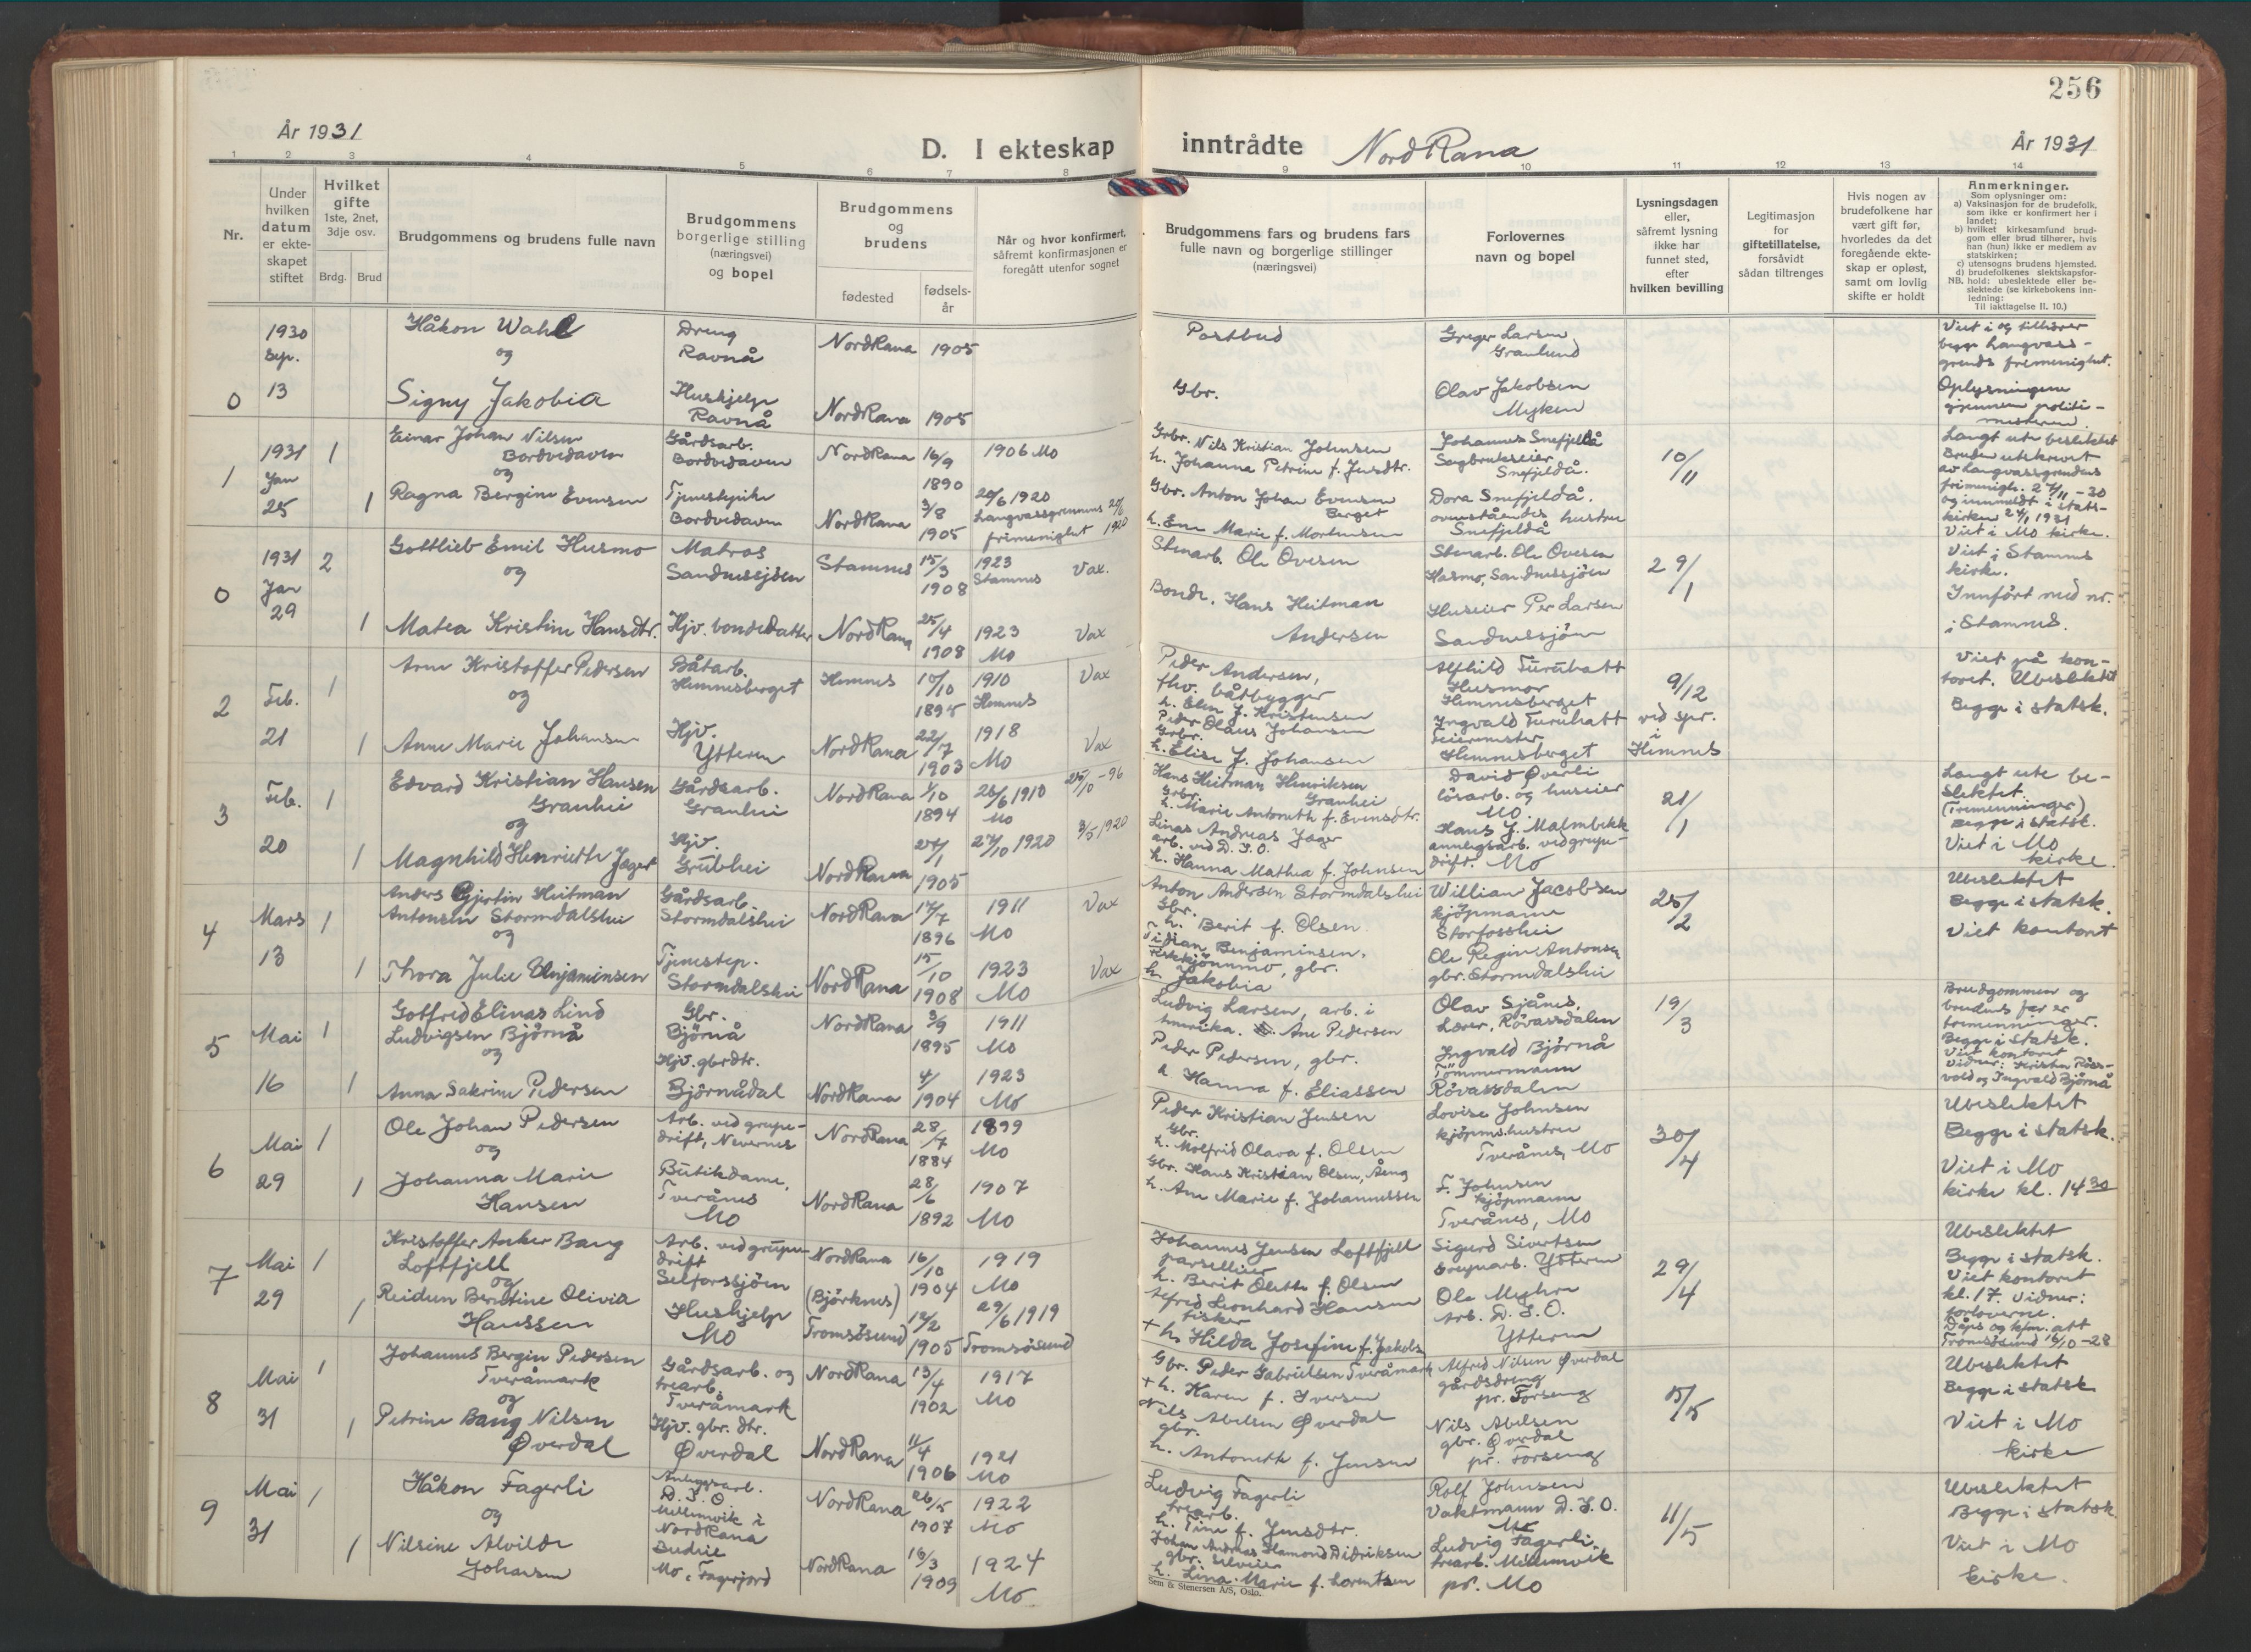 256
År 1931
D. I ekteskap
inntrådte
NordRana
År 1931
1 2 3 4 5 6 7 8 9 10 11 12 13 14
Nr.
Under
hvilken
datum
er ekte-
skapet
stiftet
Hvilket
gifte
1ste, 2net,
3dje osv.
Brdg.
Brud
Brudgommens og brudens fulle navn
Brudgommens
borgerlige stilling
(næringsvei)
og bopel
Brudgommens
og
brudens
fødested
fødsels-
år
Når og hvor konfirmert,
såfremt konfirmasjonen er
foregått utenfor sognet
Brudgommens fars og brudens fars
fulle navn og borgerlige stillinger
(næringsvei)
Forlovernes
navn og bopel
Lysningsdagen
eller,
såfremt lysning
ikke har
funnet sted,
efter
hvilken bevilling
Legitimasjon
for
giftetillatelse,
forsåvidt
sådan tiltrenges
Hvis nogen av
brudefolkene har
vært gift før,
hvorledes da det
foregående ekte-
skap er opløst,
samt om lovlig
skifte er holdt
Anmerkninger.
Som oplysninger om:
a) Vaksinasjon for de brudefolk,
som ikke er konfirmert her i
landet;
b) hvilket kirkesamfund brud-
gom eller brud tilhører, hvis
han (hun) ikke er medlem av
statskirken;
c) utensogns brudens hjemsted.
d) brudefolkenes slektskapsfor-
hold: ubeslektede eller be-
slektede (se kirkebokens inn-
ledning:
NB. Til iakttagelse II. 10.)
0
1930
Sep.
13
Håkon Wahl
og
Signy Jakobia
Dreng
Ravnå
Huskjelp
Ravnå
NordRana 1905
NordRana 1905
Postbud
Gbr.
Greger Larsen
Granlund
Olav Jakobsen
Myken
Viet i og tilhører
begge Langvass-
grends frimenighet.
Oplysningene
gjennem politi-
mesteren.
1
1931
Jan
25
1
1
Einar Johan Nilsen
Bordvedaven
og
Ragna Bergine Evensen
Gårdsarb.
Bordvedaven
Tjenestepike
Bordvedaven
NordRana 16/9 1890
1906 Mo
NordRana 3/8 1905
20/6 1920
Langvassgrennens
frimenighet
20/6 1920
Grbr. Nils Kristian Johnsen
h. Johanna Petrine f. Jensdtr.
Gbr. Anton Johan Evensen
Berget
h. Ene Marie f. Mortensen
Johannes Snefjellå
Sagbrukseier
Snefjeldå.
Dora Snefjeldå.
ovenståendes hustru
Snefjeldå
10/11
Langt ute beslektet
Bruden utskrevet
av Langvassgrendens
frimenigh. 27/11-30
og innmeldt i stats-
kirken 24/1 1931
Viet i Mo kirke.
0
1931
Jan
29
2
1
Gottlieb Emil Husmo
og
Matea Kristine Hansdtr.
Matros
Sandnessjöen
Hjv. bondedatter
Stamnes 15/3 1908
1923
Stamnes
Vax.
NordRana 25/4 1908
1923
Mo
Vax
Stenarb. Ole Ovesen
Bonde. Hans Heitman
Andersen
Stenarb. Ole Ovesen
Husmo, Sandnessjöen
Huseier Per Larsen
Sandnessjöen
29/1
Viet i Stamnes
kirke.
Innfört med nr.
i Stamnes.
2
Feb.
21
1
1
Arne Kristoffer Pedersen
og
Anne Marie Johansen
Båtarb.
Hemnesberget
Hjv.
Ytteren
Hemnes 10/10 1895
1910
Hemnes
Vax
NordRana 22/7 1903
1918
Mo
Vax
Peder Andersen,
fhv. båtbygger
h. Elen f. Kristensen
Peder Olaus Johansen
Grbr.
h. Elise f. Johansen
Alfhild Turuhatt
Husmor
Hemnesberget
Ingvald Turuhatt
Feiermester
Hemnesberget
9/12
ved spr.
i
Hemnes
Viet på kon-
toret. Ubeslektet
Begge i statsk.
3
Feb.
20
1
1
Edvard Kristian Hansen
Granhei
og
Magnhild Henriette Jager
Gårdsarb.
Granhei
Hjv.
Grubhei
NordRana 1/10 1894
26/6 1910
Mo
25/10-96
NordRana 27/1 1905
24/10 1920
3/5 1920
Hans Heitman Henriksen
Grbr. Granhei
h. Marie Antonette f. Evensdtr.
Linas Andreas Jager
arb. ved D. J. O.
h. Hanna Mathea f. Johnsen
David Øverli
lösarb. og huseier
Mo.
Hans J. Malmbekk
anleggsarb. ved grupe-
drift. Mo
21/1
Langt ute be-
slektet.
(Tremenninger)
Begge i statsk.
Viet i Mo
kirke.
4
Mars
13
1
1
Anders Gjertin Heitman
Antonsen Stormdalshei
og
Thora Julie Benjaminsen
Gårdsarb.
Stormdalshei
Tjenestep.
Stormdalshei
NordRana 17/7 1896
1911
Mo
Vax
NordRana 15/10 1908
1923
Mo
Vax
Anton Andersen Stormdalshei
Gbr.
h. Berit f. Olsen
Tidian Benjaminsen,
gbr.
h. Jakobia
Willian Jacobsen
kjöpmann
Storfosshei
Ole Regin Antonsen
gbr. Stormdalshei
25/2
Ubeslektet
Begge i statsk.
Viet kontoret
5
Mai
16
1
1
Gotfred Elinas Lind
Ludvigsen Björnå
og
Anna Sakrine Pedersen
Gbr.
Björnå
Hjv. gbrdtr.
Björnådal
NordRana 3/9 1895
1911
Mo
NordRana 4/ 1904
1923
Mo
Ludvig Larsen, arb. i
Amerika. Ane Pedersen
Peder Pedersen, gbr.
h Hanna f. Eliassen
Olav Sjånes.
Lærer, Rövassdalen
Ingvald Björnå
Tömmermann
Rövassdalen
19/3
Brudgommen og
brudens far er
tremenninger.
Begge i statsk.
Viet kontoret
Vidner: Kristen Röss-
vold og Ingvald Björnå
6
Mai
29
1
1
Ole Johan Pedersen
og
Johanna Marie
Hansen
Arb. ved grupe-
drift, Nevernes
Butikdame,
Tverånes
Mo
NordRana 28/7 1884
1899
Mo
NordRana 28/6 1892
1907
Mo
Peder Kristian Jensen
Gbr.
h. Molfrid Olava f. Olsen
Gbr. Hans Kristian Olsen, Aeng
h. Ane Marie f. Johannessen
Lovise Johnsen
kjöpms.hustru
Tverånes, Mo
F. Johnsen
kjöpmann
Tverånes, Mo
30/4
Ubeslektet
Begge i statsk.
Viet i Mo
kirke kl. 14 30
7
Mai
29
1
1
Kristoffer Anker Bang
Loftfjell
og
Reidun Berntine Olivia
Hanssen
Arb. ved grupe-
drift
Selforssjöen
Hushjelp
Mo
NordRana 16/10 1904
1919
Mo
(Björknes)
Tromsösund 12/2 1905
29/6 1919
Tromsösund
Johannes Jensen Loftfjell
parselleier
h. Berit Olette f. Olsen
Alfred Leonhard Hansen
fisker
+ h. Hilda Josefine f. Jakobs
Sigurd Sivertsen
Ytteren
Ole Myhre
Arb. D. J. O.
Ytteren
29/4
Ubeslektet
Begge i statsk.
Viet kontoret
kl. 17. Vidner:
forloverne.
Dåps og kfm. att
Tromsösund 16/10-28
8
Mai
31
1
1
Johannes Bergin Pedersen
Tveråmark
og
Petrine Bang Nilsen
Øverdal
Gårdsarb. og
trearb.
Tveråmark
Hjv. gbr. dtr.
Øverdal
NordRana 13/4 1902
1917
Mo
NordRana 11/4 1906
1921
Mo
Gbr. Peder Gabrielsen Tveråmark
+ h. Karen f. Iversen
Nils Abelsen Øverdal
gbr.
h. Antonette f. Jensen
Alfred Nilsen Øverdal
gårdsdreng
pr. Forseng
Nils Abelsen
gbr. Øverdal
pr. Forseng
15/5
Ubeslektet
Begge i statsk
Viet i Mo
kirke
9
Mai
31
1
1
Håkon Fagerli
og
Nilsine Alvilde
Johansen
Anleggsarb.
D. J. O.
Mellemvik i
NordRana
Budeie
Mo, Fagerjord
NordRana 26/5 1907
1922
Mo
NordRana 16/3 1909
1924
Mo
Ludvig Fagerli
trearb.
h. Tine f. Jensdtr.
Johan Andreas Hamond Didriksen
gbr.
h. Lina Marie f. Lorentsen
Rolf Johnsen
Vaktmann D. J. O.
Mo
Ludvig Fagerli,
trearb. Mellemvik
pr. Mo
11/5
Ubeslektet
Begge i statsk.
Viet i Mo
kirke.
Sem & Stenersen A/S, Oslo.